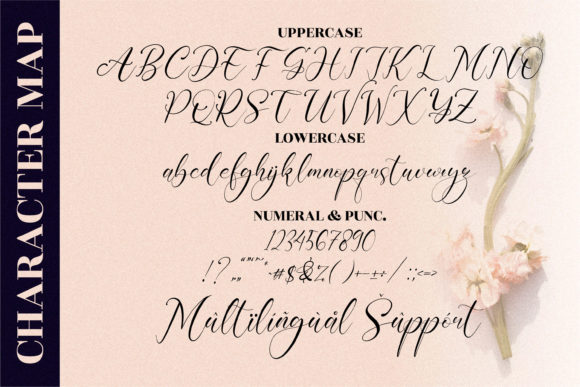 CHARACTER MAP
UPPERCASE
ABCDEFGHIJKLMNO
PQRSTUVWXYZ
LOWERCASE
abcdefghijklmnopqrstuvwxyz
NUMERAL & PUNC.
1234567890
#$&%()+-±÷/:;<=>
Mûltïlíñgùål Šûppórt